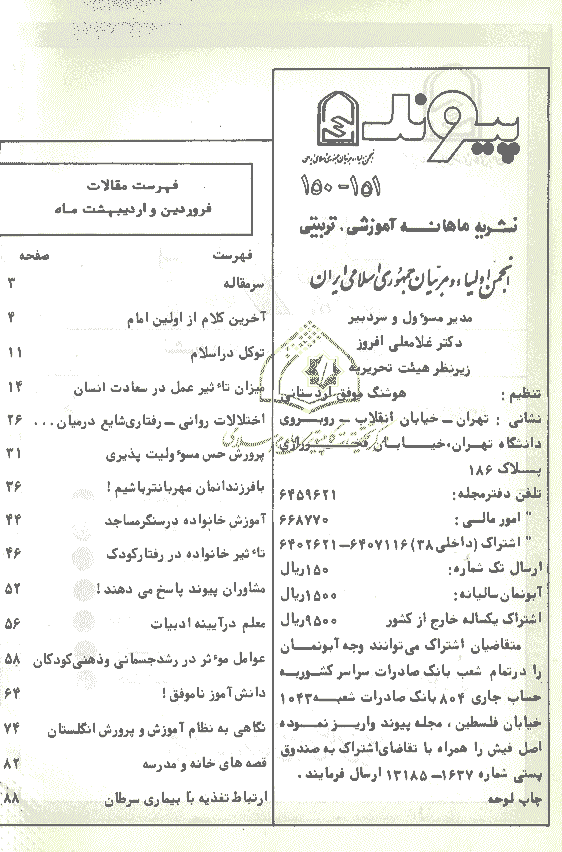 پیوند
انجمن اولیاء و مربیان جمهوری اسلامی ایران
۱۵۰-۱۵۱
نشریه ماهانه آموزشی، تربیتی
انجمن اولیاء و مربیان جمهوری اسلامی ایران
مدیر مسؤول و سردبیر
دکتر غلامعلی افروز
زیرنظر هیئت تحریریه
تنظیم : هوشنگ موفق اردستانی
نشانی : تهران ـ خیابان انقلاب ـ روبروی
دانشگاه تهران، خیابان فخررازی
پلاک ۱۸۶
تلفن دفترمجله: ۶۴۵۹۶۲۱
" امور مالی: ۶۶۸۷۷۰
" اشتراک (داخلی ۳۸) ۶۴۰۷۱۱۶-۶۴۰۲۶۲۱
ارسال تک شماره: ۱۵۰ریال
آبونمان سالیانه: ۱۵۰۰ریال
اشتراک یکساله خارج از کشور ۹۵۰۰ریال
متقاضیان اشتراک می‌توانند وجه آبونمان
را درتمام شعب بانک صادرات سراسر کشوربه
حساب جاری ۸۰۴ بانک صادرات شعبه ۱۰۴۳
خیابان فلسطین ، مجله پیوند واریز نموده
اصل فیش را همراه با تقاضای اشتراک به صندوق
پستی شماره ۱۶۳۷-۱۳۱۸۵ ارسال فرمایند .
چاپ لوحه
فهرست مقالات
فروردین و اردیبهشت ماه
فهرست صفحه
سرمقاله ۳
آخرین کلام از اولین امام ۴
توکل دراسلام ۱۱
میزان تاٴثیر عمل در سعادت انسان ۱۴
اختلالات روانی ـ رفتاری شایع درمیان ... ۲۶
پرورش حس مسوٴولیت پذیری ۳۱
بافرزندانمان مهربانتر باشیم ! ۳۶
آموزش خانواده درسنگر مساجد ۴۴
تاٴثیر خانواده در رفتارکودک ۴۶
مشاوران پیوند پاسخ می دهند ! ۵۲
معلم درآیینه ادبیات ۵۶
عوامل موٴثر در رشدجسمانی وذهنی کودکان ۵۸
دانش‌آموز ناموفق ! ۶۴
نگاهی به نظام آموزش و پرورش انگلستان ۷۴
قصه های خانه و مدرسه ۸۲
ارتباط تغذیه با بیماری سرطان ۸۸